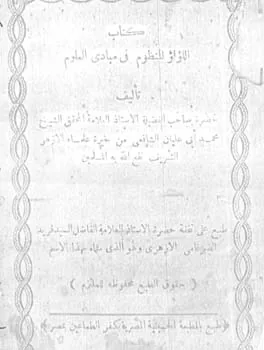 كتاب
اللؤلؤ المنظوم فى مبادى العلوم
تأليف
حضرة صاحب الفضيلة الاستاذ العلامة المحقق الشيخ
محمد أبى عليان الشافعى من خيرة علماء الازهر
الشريف نفع الله به المسلمين
طبع على نفقة حضرة الاستاذ العلامة الفاضل السيد فريد
الازهرى وهو الذى سماه بهذا الاسم
( حقوق الطبع محفوظة للملتزم )
طبع بالمطبعة المصرية بكفر الطماعين بمصر